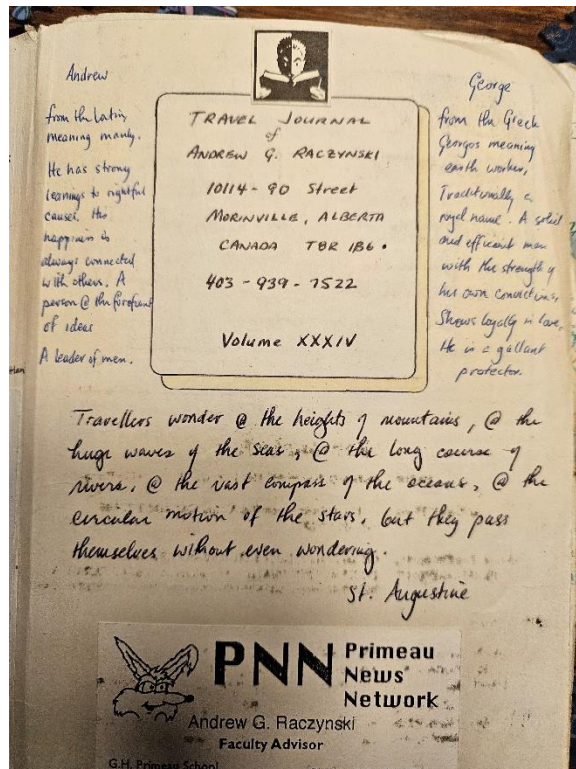 Andrew
from the Latin
meaning manly.
He has strong
leanings to rightful
causes. His
happiness is
always connected
with others. A
person @ the forefront
of ideas
A leader of men.
TRAVEL JOURNAL
of
ANDREW G. RACZYNSKI
10114 - 90 Street
MORINVILLE, ALBERTA
CANADA T8R 1B6.
403 - 939 - 7522
Volume XXXIV
George
from the Greek
Georgos meaning
earth worker,
Traditionally a
royal name. A solid
and efficient man
with the strength of
his own convictions,
Shows loyalty in love,
He is a gallant
protector.
Travellers wonder @ the heights of mountains, @ the
huge waves of the seas, @ the long course of
rivers, @ the vast compass of the oceans, @ the
circular motion of the stars, but they pass
themselves without even wondering.
St. Augustine
PNN Primeau
News
Network
Andrew G. Raczynski
Faculty Advisor
G.H. Primeau School